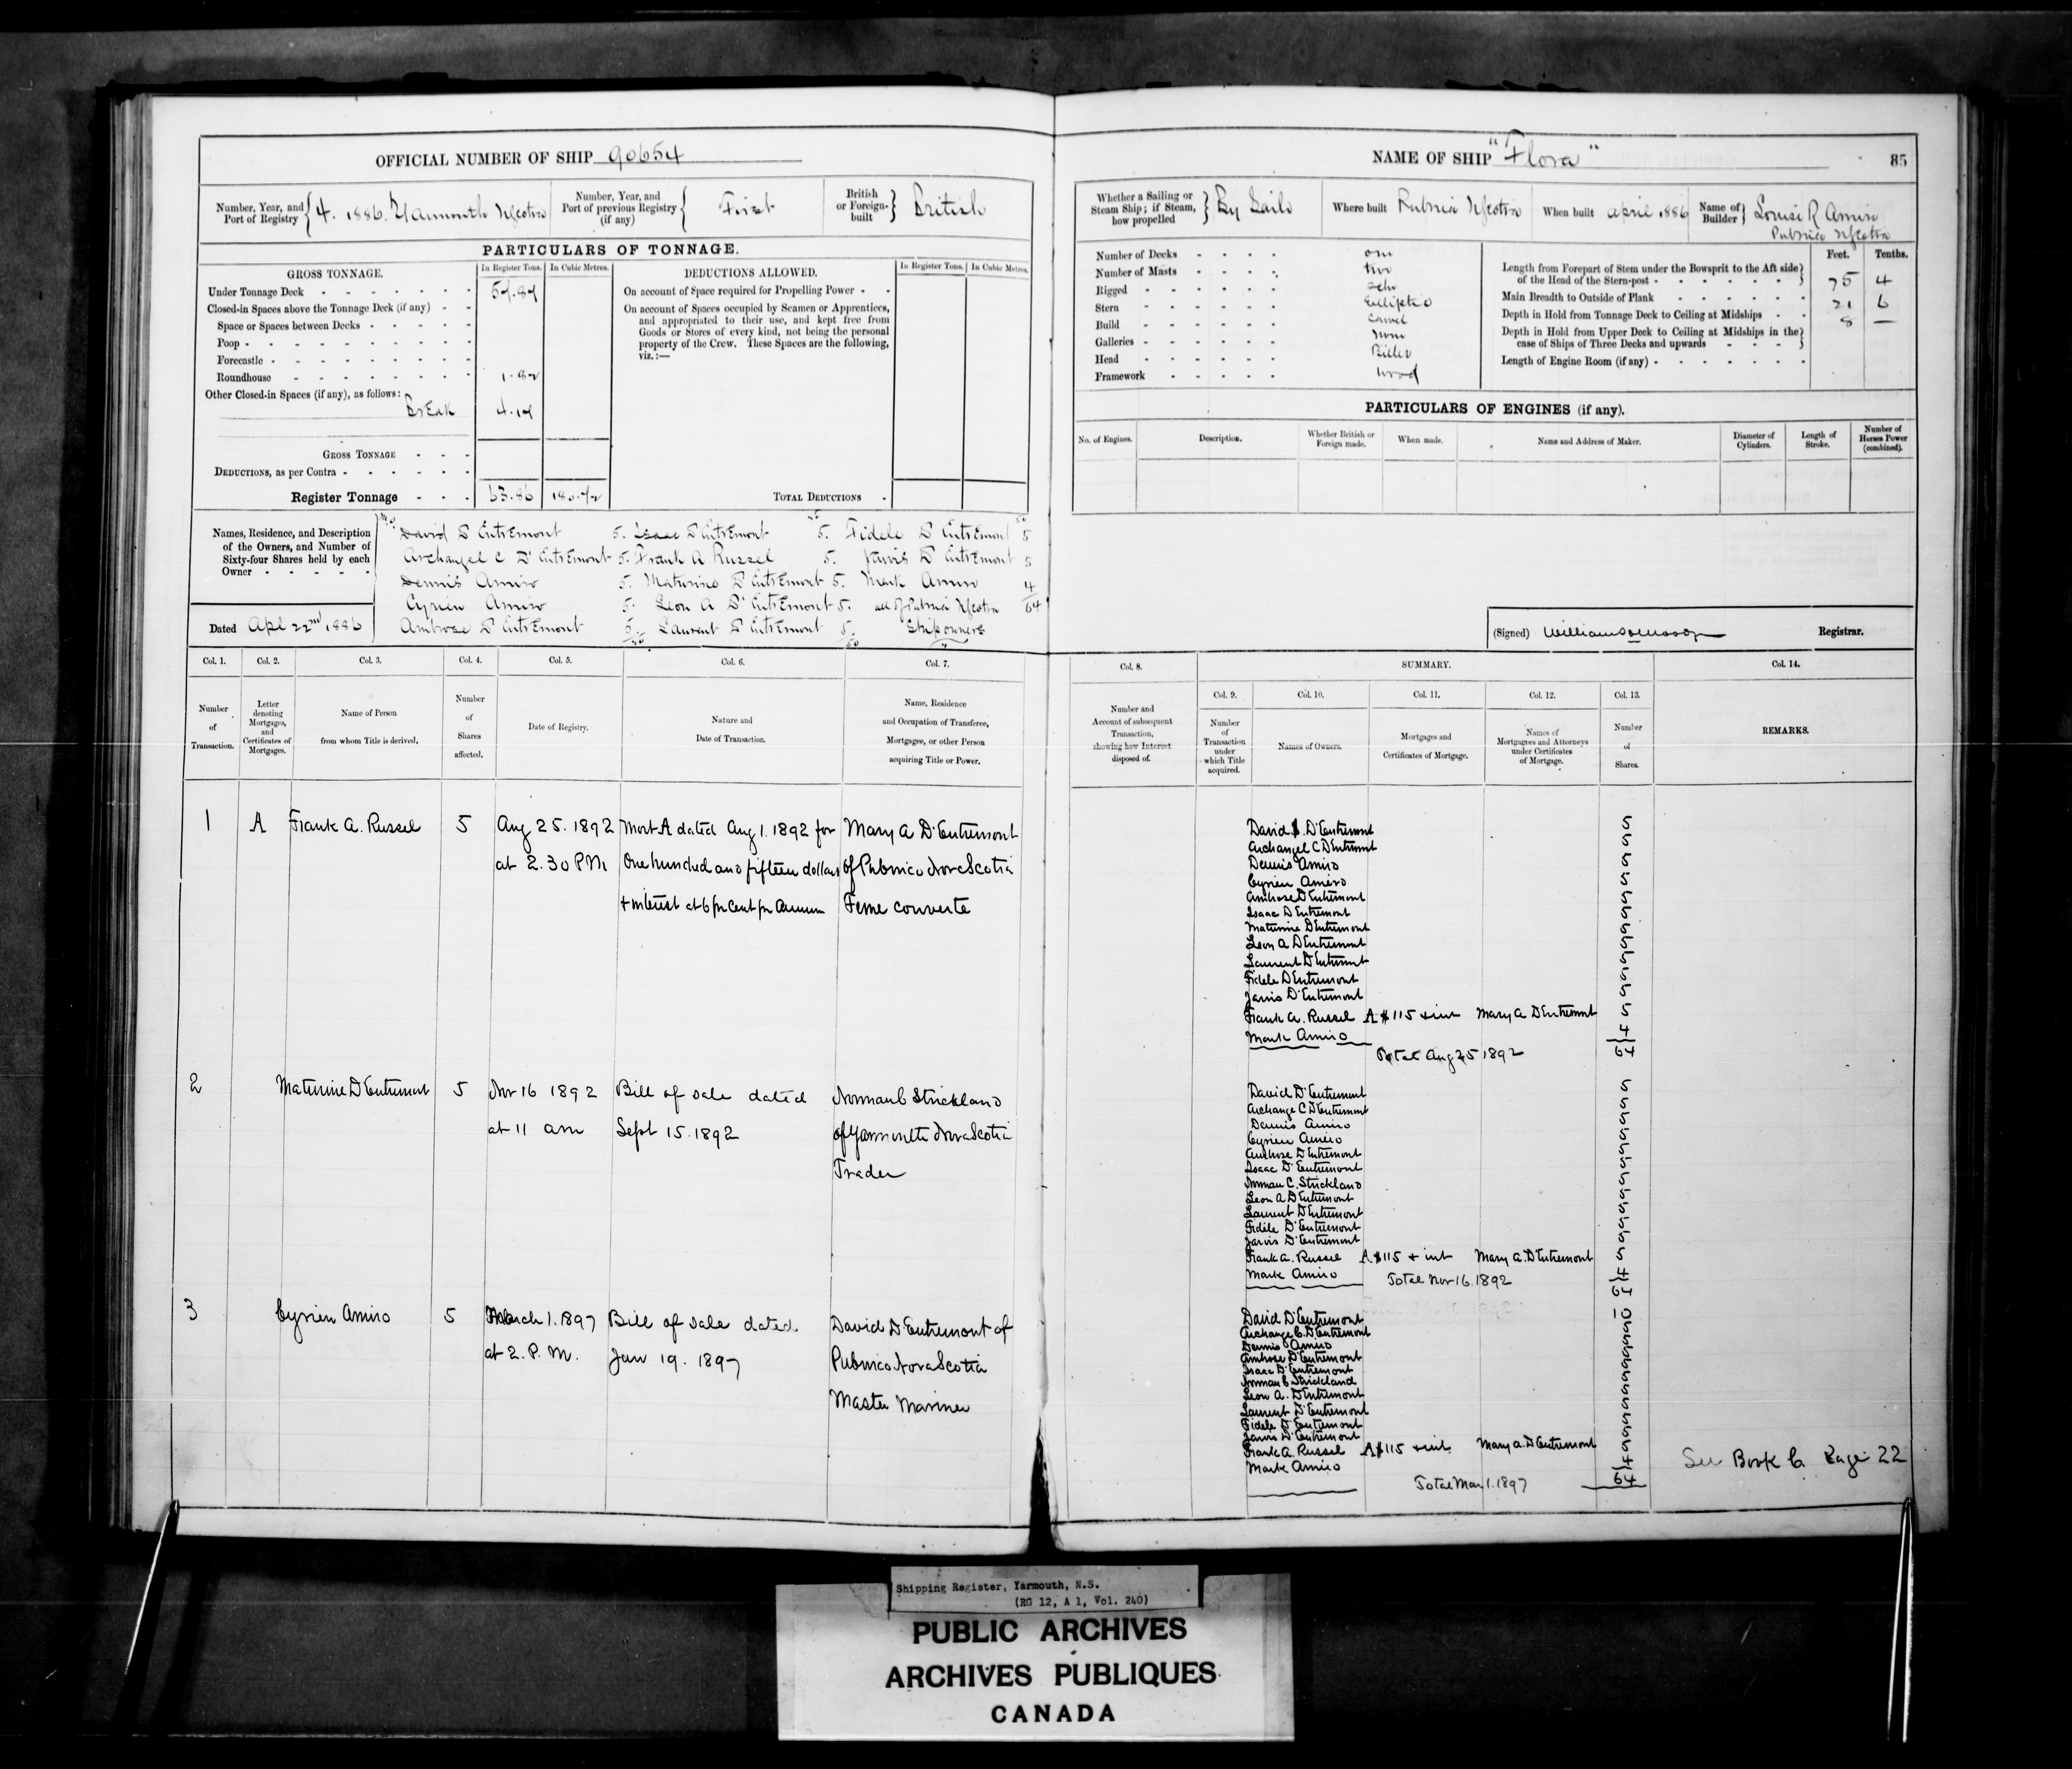 OFFICIAL NUMBER OF SHIP 90654
Number, Year, and
Port of Registry
4. 1886. Yarmouth NScotia
Number, Year, and
Port of previous Registry
(if any)
First
British
or Foreign-
built
British
PARTICULARS OF TONNAGE.
GROSS TONNAGE.
In Register Tons.
In Cubic Metres.
DEDUCTIONS ALLOWED.
In Register Tons.
In Cubic Metres.
Under Tonnage Deck
Closed-in Spaces above the Tonnage Deck (if any)
Space or Spaces between Decks
Poop
Forecastle
Roundhouse
Other Closed-in Spaces (if any), as follows:
Break
GROSS TONNAGE
DEDUCTIONS, as per Contra
Register Tonnage 63.86
On account of Space required for Propelling Power
On account of Spaces occupied by Seamen or Apprentices,
and appropriated to their use, and kept free from
Goods or Stores of every kind, not being the personal
property of the Crew. These Spaces are the following,
viz.:—
TOTAL DEDUCTIONS
Names, Residence, and Description
of the Owners, and Number of
Sixty-four Shares held by each
Owner
David D'EntrEmont 5. Isaac D'EntrEmont 5. Fidele D'EntrEmont 5
Archangel C D'EntrEmont 5. Frank A Russel 5. Jarvis D'EntrEmont 5
Dennis Amiro 5. Maturino D'EntrEmont 5. Mark Amiro 4
Cyrien Amiro 5. Leon A D'EntrEmont 5. all of Pubnico NScotia 64
Ambrose D'EntrEmont 5. Laurent D'EntrEmont 5. Shipowners
Dated Apl 22nd 1886
Col. 1.
Col. 2.
Col. 3.
Col. 4.
Col. 5.
Col. 6.
Col. 7.
Number
of
Transaction.
Letter
denoting
Mortgages,
and
Certificates of
Mortgages.
Name of Person
from whom Title is derived.
Number
of
Shares
affected.
Date of Registry.
Nature and
Date of Transaction.
Name, Residence
and Occupation of Transferee,
Mortgagee, or other Person
acquiring Title or Power.
1 A Frank A. Russel 5 Aug 25. 1892 Mort A dated Aug 1. 1892 for Mary A D'Entremont
at 2.30 PM One hundred and fifteen dollars of Pubnico Nova Scotia
+ interest at 6 pr Cent pr Annum Feme converte
2 Maturine D'Entremont 5 Nov 16 1892 Bill of Sale dated Norman C Strickland
at 11 am Sept 15. 1892 of Yarmouth Nova Scotia
Trader
3 Cyrien Amiro 5 March 1. 1897 Bill of Sale dated David D'Entremont of
at 2. P.M. Jan 19. 1897 Pubnico Nova Scotia
Master Mariner
NAME OF SHIP "Flora"
85
Whether a Sailing or
Steam Ship; if Steam,
how propelled
By Sails
Where built Pubnico NScotia
When built April 1886
Name of
Builder
Louise R Amiro
Pubnico NScotia
Number of Decks one
Number of Masts two
Rigged Schr
Stern Elliptic
Build Carvel
Galleries none
Head Billet
Framework wood
Feet. Tenths.
Length from Forepart of Stem under the Bowsprit to the Aft side
of the Head of the Stern-post 75 4
Main Breadth to Outside of Plank 21 6
Depth in Hold from Tonnage Deck to Ceiling at Midships 8 —
Depth in Hold from Upper Deck to Ceiling at Midships in the
case of Ships of Three Decks and upwards
Length of Engine Room (if any)
PARTICULARS OF ENGINES (if any).
No. of Engines.
Description.
Whether British or
Foreign made.
When made.
Name and Address of Maker.
Diameter of
Cylinders.
Length of
Stroke.
Number of
Horses Power
(combined).
(Signed) Registrar.
Col. 8.
SUMMARY.
Col. 14.
Col. 9.
Col. 10.
Col. 11.
Col. 12.
Col. 13.
Number and
Account of subsequent
Transaction,
showing how Interest
disposed of.
Number
of
Transaction
under
which Title
acquired.
Names of Owners.
Mortgages and
Certificates of Mortgage.
Names of
Mortgagees and Attorneys
under Certificates
of Mortgage.
Number
of
Shares.
REMARKS.
David D'Entremont 5
Archangel C D'Entremont 5
Dennis Amiro 5
Cyrien Amiro 5
Ambrose D'Entremont 5
Isaac D'Entremont 5
Maturine D'Entremont 5
Leon A D'Entremont 5
Laurent D'Entremont 5
Fidele D'Entremont 5
Jarvis D'Entremont 5
Frank A. Russel A $115 + int Mary A D'Entremont 5
Mark Amiro 4
Total Aug 25 1892 64
David D'Entremont 5
Archange C D'Entremont 5
Dennis Amiro 5
Cyrien Amiro 5
Ambrose D'Entremont 5
Isaac D'Entremont 5
Norman C. Strickland 5
Leon A D'Entremont 5
Laurent D'Entremont 5
Fidele D'Entremont 5
Jarvis D'Entremont 5
Frank A. Russel A $115 + int Mary A. D'Entremont 5
Mark Amiro 4
Total Nov 16. 1892 64
David D'Entremont 10
Archange C. D'Entremont 5
Dennis Amiro 5
Ambrose D'Entremont 5
Isaac D'Entremont 5
Norman C Strickland 5
Leon A. D'Entremont 5
Laurent D'Entremont 5
Fidele D'Entremont 5
Jarvis D'Entremont 5
Frank A. Russel A $115 + int Mary A. D'Entremont 5
Mark Amiro 4
Total Mar 1. 1897 64
See Book C. Page 22
Shipping Register, Yarmouth, N.S.
(RG 12, A 1, Vol. 240)
PUBLIC ARCHIVES
ARCHIVES PUBLIQUES
CANADA